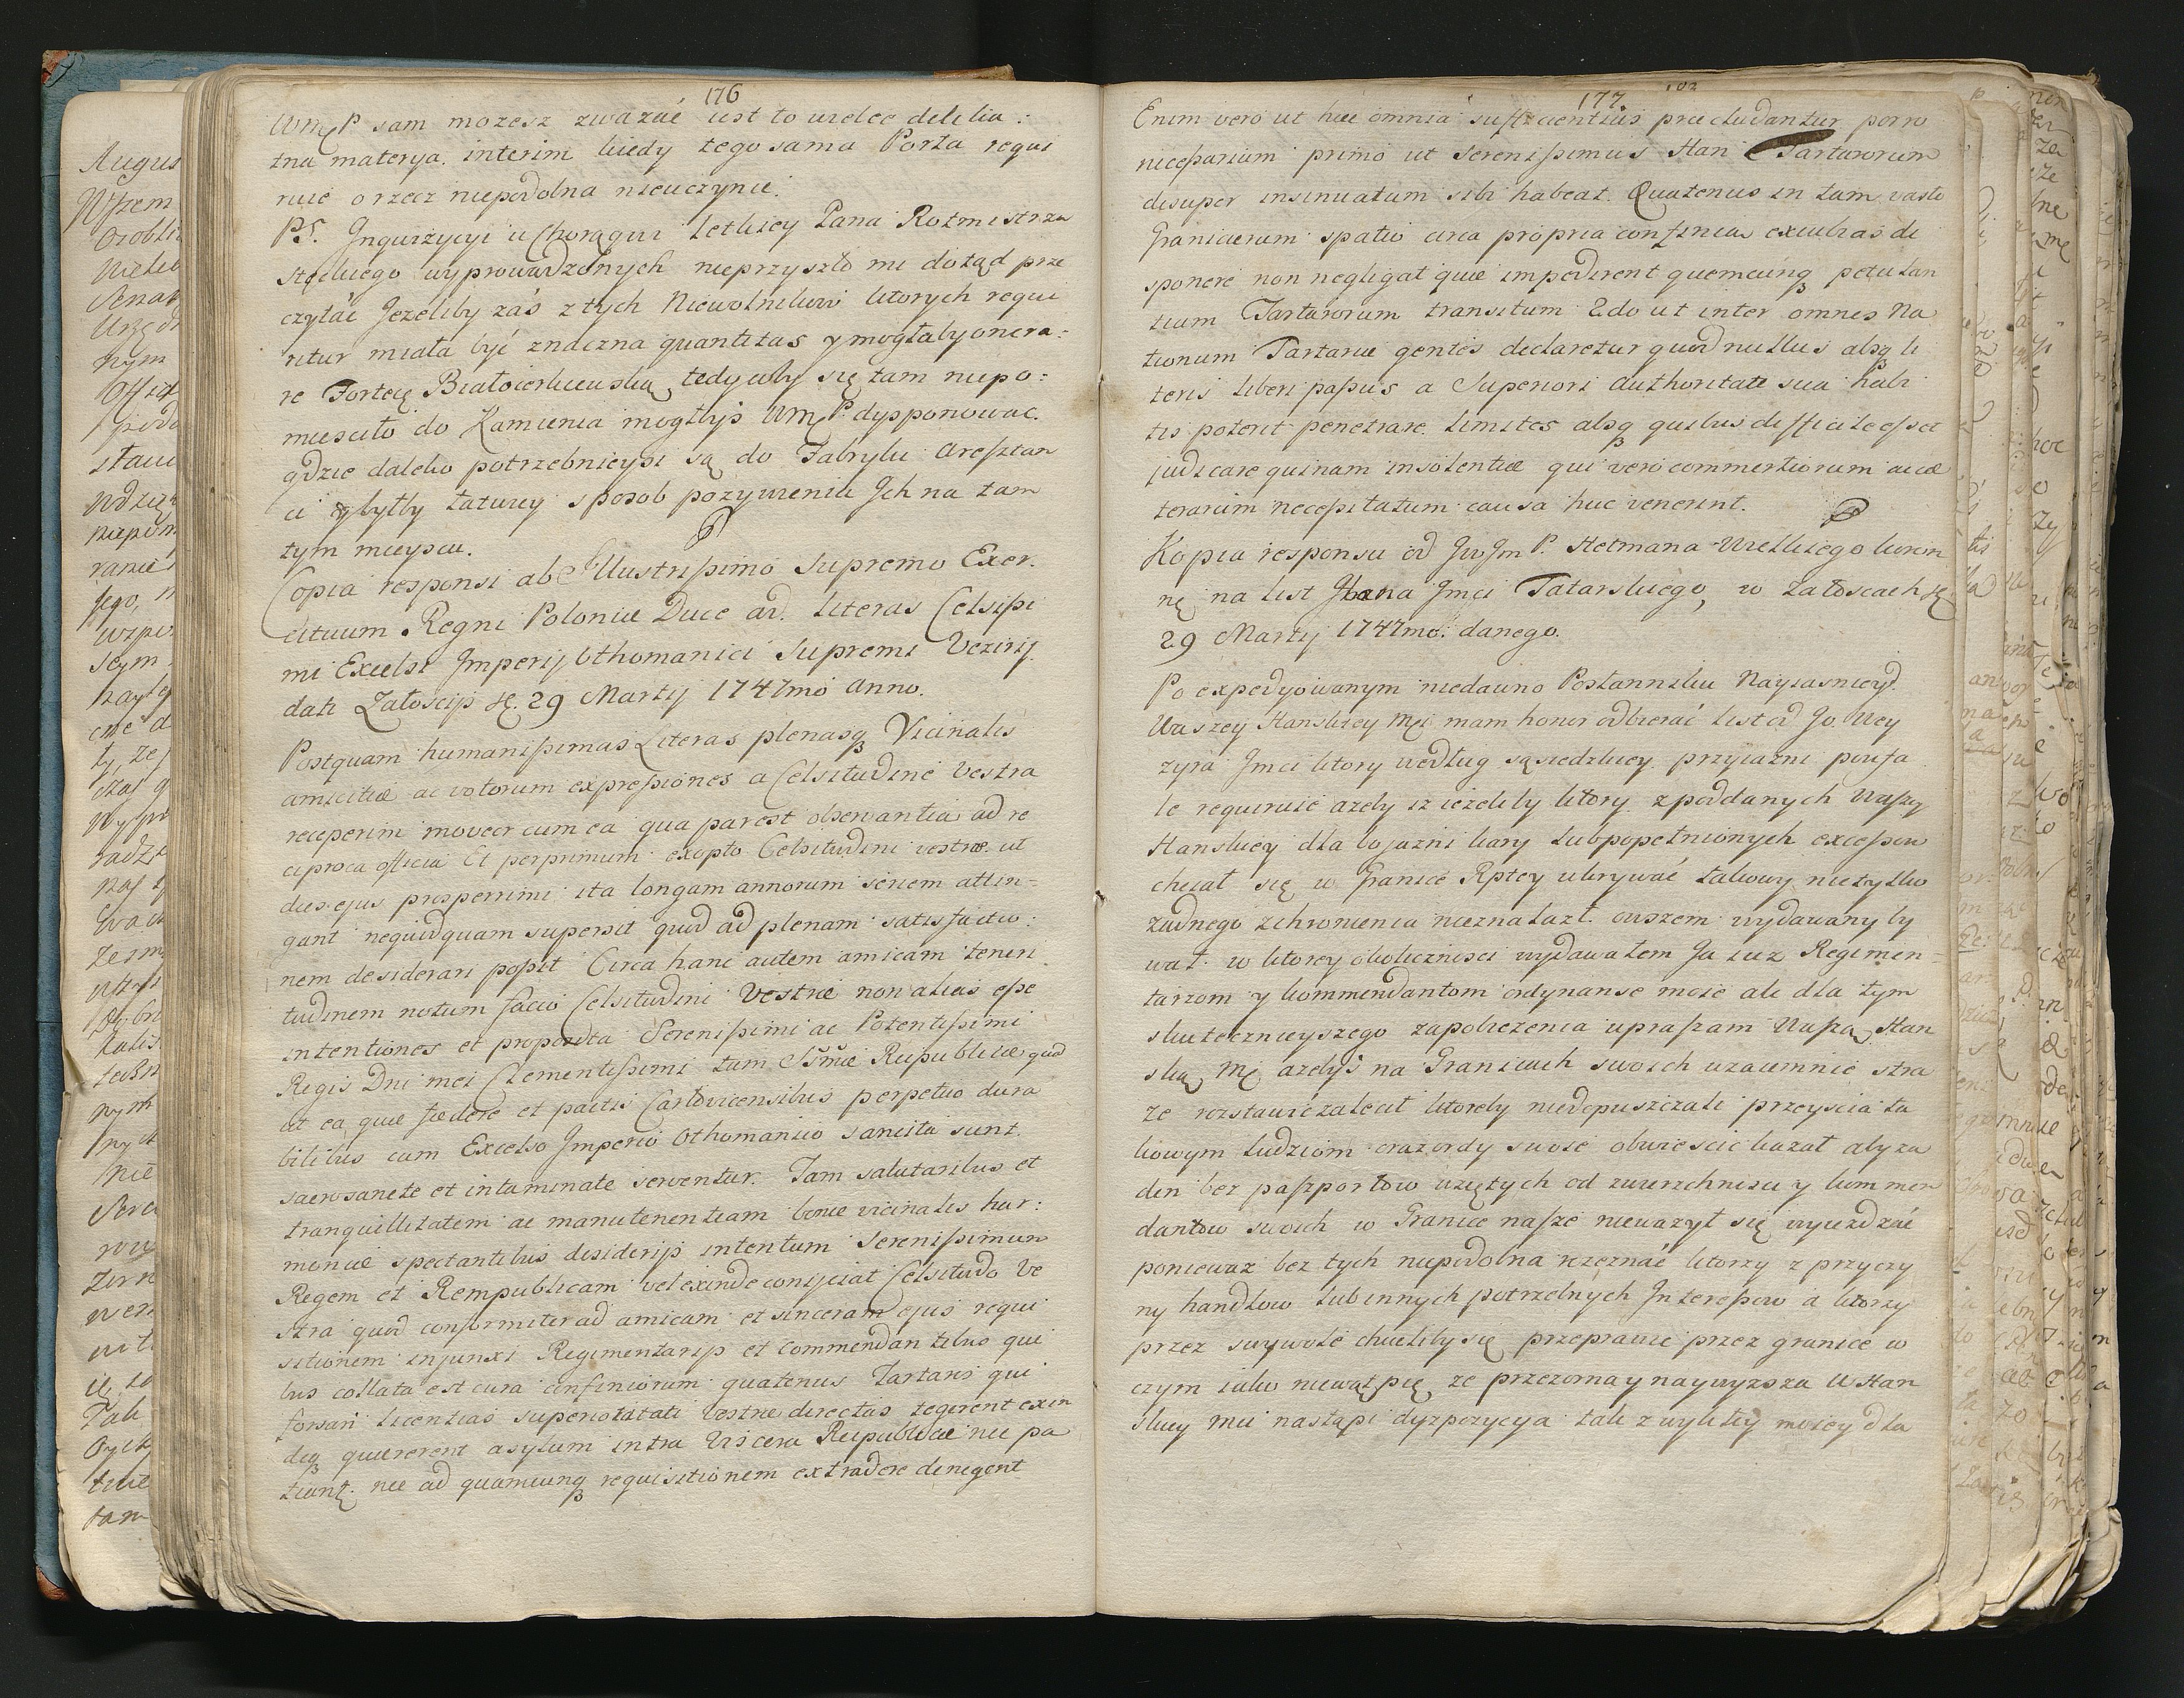 176
WmP sam możesz zważać iest to wielce delika:
tna materya. interim kiedy tego sama Porta requi
ruie o rzecz niepodolna nieuczynie.
PS. Inquizycyi u Chorągwi letkiey Pana Rotmistrza
wyprowadzonych nieprzyszło mi dotąd prze
czytać Jeżeliby zás z tych Niewolnikow ktorych requi
ritur miała być znaczna quantitas y mogłaby onera:
re Fortecę Białocerkiewską, tedy iakby się tam niepo:
miesciło do Kamienia mogłbyś WmP. dysponowac.
gdzie daleko potrzebnieysi są do Fabryki aresztan
ci y byłby łatwiey sposob pożywienia Ich na tam
tym mieyscu.
Copia responsi ab Illustrissimo Supremo Exer.
cituum Regni Poloniæ Duce ad. literas Celsissi
mi Excelsi Imperij Othomanici Supremi Vezirij.
dati Załoscijs d. 29 Martij 1747mo Anno.
Postquam humanissimas Literas plenasq Vicinalis
amicitiæ ac votorum expressiones a Celsitudine Vestra
receperim moveor cum ea qua par est observantia ad re
ciproca officia Et perprimum exopto Celsitudini vestræ. ut
dies ejus prosperrimi ita longam annorum seriem attin=
gant nequidquam supersit quod ad plenam satisfactio:
nem desiderari possit Circa hanc autem amicam teneri.
tudinem notum facio Celsitudini Vestræ non alias esse
intentiones et proposita Serenissimi ac Potentissimi
Regis Dni mei Clementissimi tum Ssmæ Reipublicæ quod
ut ea quæ fœdere et pactis Carlovicensibus perpetuo dura
bilibus cum Excelso Imperio Othomanico sancita sunt.
sacrosancte et intaminate serventur. Tam salutaribus et
tranquillitatem ac manutenentiam bonæ vicinalis har:
moniæ spectantibus desiderijs intentum Serenissimum
Regem et Rempublicam vel exinde conijciat Celsitudo Ve
stra quod conformiter ad amicam et sinceram ejus requi
sitionem injunxi Regimentarijs et Commendantibus qui
bus collata est cura confiniorum quatenus Tartaris qui
forsan licentias superioritati Vestræ directas tegerent exin
deq quærerent asylum intra Viscera Reipublicæ nec pa
tiant. nec ad quamcunq requisitionem extradere denegent
177. 102
Enim vero ut hæc omnia sufficientius præcludantur porro
necessarium primo ut Serenissimus Han Tartarorum
desuper insinuatum sibi habeat. Quatenus in tam vasto
Granicierum spatio circa propria confinia excubias di
sponere non negligat quæ impedirent quemcunq petulan
tium Tartarorum transitum 2do ut inter omnes Na
tionum Tartariæ gentes declaretur quod nullus absq li
teris liberi passus a Superiori Authoritate sua habi
tis poterit penetrare. limites absq quibus difficile esset
judicare quinam insolentiæ qui vero commertiorum aut
terarum necessitatum causa huc venerint.
Kopia responsu od JwJm P. Hetmana Wielkiego koron
nę na list Hana Jmci Tatarskiego, w Załoscach d.
29 Martij 1747mo. danego.
Po expedyowanym niedawno Posłannikiu Nayiasnieyd.
Waszey Hanskiey Mci mam honor odbierać list od Jo. Wey
zyra Jmci ktory według sąsiedzkiey. przyiazni poufa.
le requiruie ażeby iz ieżeliby ktory. z poddanych Waszey
Hanskiey dla bojazni kary lub popełnionych excessow
chciał się w Granice Rptey ukrywać takowy nietylko
żadnego schronienia nieznalazł. owszem wydawany by
wał. w ktorey okoliczności wydawałem Ja iuż Regimen=
tarzom y kommendantom ordynanse moie ale dla tym
skutecznieyszego zapobieżenia upraszam Waszą Han
ską Mć ażebyś na Granicach swoich wzaiemnie stra
że rozstawić zalecił ktoreby niedopuszczali przeyscia ta
kowym ludziom oraz ordy swoie obwiescic kazał aby ża
den bez paszportow wziętych od zwierzchnosci y kommen
dantow swoich w Granice nasze nieważył się wyieżdzać
ponieważ bez tych niepodolna rozeznać ktorzy z przyczy
ny handlow lub innych potrzebnych Interessow a ktorzy
przez swywolę chcieliby się przeprawić przez granice w
czym iako niewątpię, że przezorna y naywyższa W Han
skiey Mci nastąpi dyzpozycya tak z wyleiey moiey dla